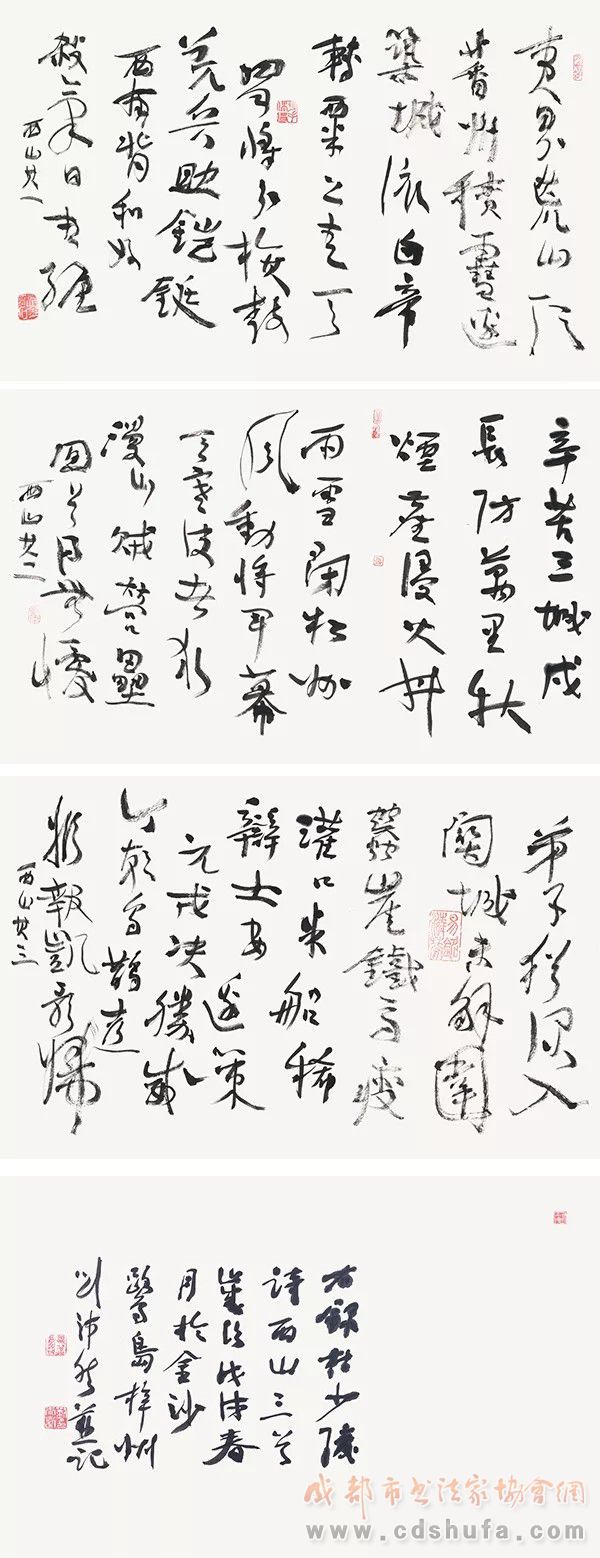 夷界荒山頂
蕃州積雪邊
築城依白帝
轉粟上青天
蜀將分旗鼓
羌兵助鎧鋋
西南背和好
殺氣日相纏
西山其一
辛苦三城戍
長防萬里秋
煙塵侵火井
雨雪閉松州
風動將軍幕
天寒使者裘
漫山賊營壘
回首得無憂
西山其二
弟子猶深入
關城未解圍
蠶崖鐵馬瘦
灌口米船稀
辯士安邊策
元戎決勝威
今朝烏鵲喜
欲報凱歌歸
西山其三
右錄杜少陵
詩西山三首
歲次戊戌春
月於金沙
鷺島梓州
劉沛
記
成都市书法家協會網
www.cdshufa.com